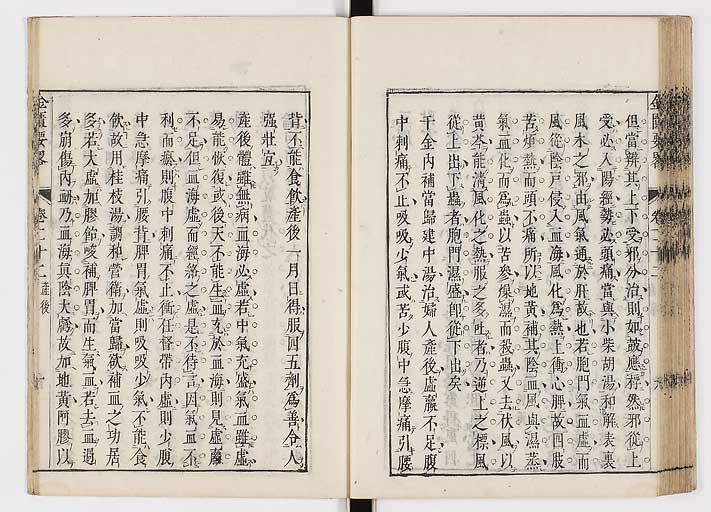 但當辨其上下受邪分治則如鼓應桴然邪從上
受必入陽經勢必頭痛當與小柴胡湯和解表裏
風木之邪由風氣通於肝故也若胞門氣血虛而
風從陰戶侵入血海風化爲熱上衝心脾故四肢
苦煩熱而頭不痛所以地黃補其陰血風與濕蒸
氣血化而爲蟲以苦參燥濕而殺蟲又去伏風以
黃芩能清風化之熱服之多吐者乃逆上之標風
從上出下蟲者胞門濕盛卽從下出矣
千金內補當歸建中湯治婦人產後虛羸不足腹
中刺痛不止吸吸少氣或苦少腹中急摩痛引腰
背不能食飲產後一月日得服四五劑爲善令人
强壯宜
產後體雖無病血海必虛若中氣充盛氣血雖虛
易能恢復或後天不能生血充於血海則見虛羸
不足但血海虛而經絡之虛是不待言因氣血不
利而瘀則腹中刺痛不止衝任督帶內虛則少腹
中急摩痛引腰背脾胃氣虛則吸吸少氣不能食
飲故用桂枝湯調和營衛加當歸欲補血之功居
多若大虛加膠飴峻補脾胃而生氣血若去血過
多崩傷內動乃血海與陰大虧故加地黃阿膠以
金匱要畧
卷二十二
產後